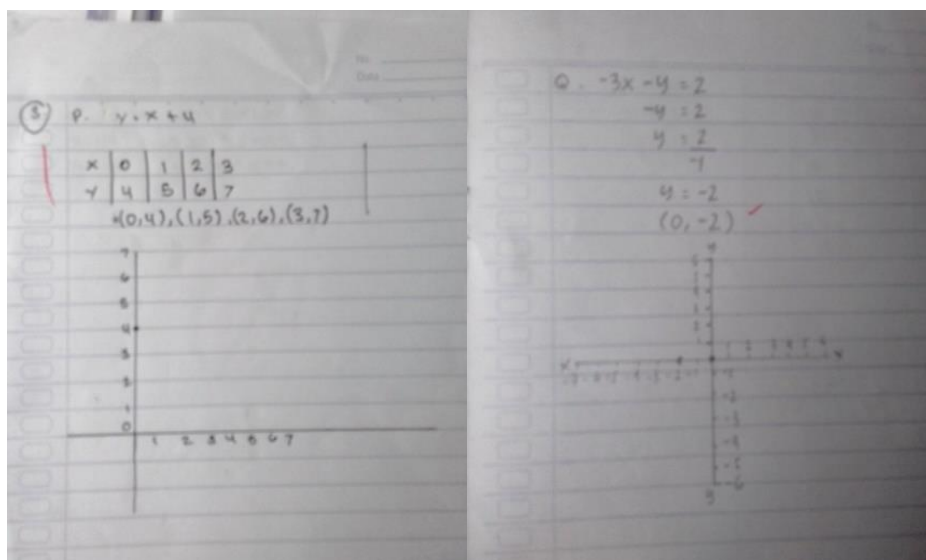 No
Date
3 P. y = x + 4
x 0 1 2 3
y 4 5 6 7
(0,4), (1,5), (2,6), (3,7)
7
6
5
4
3
2
1
0
1 2 3 4 5 6 7
Q. -3x - y = 2
-y = 2
y = 2
-1
y = -2
(0, -2)
y
1 2 3 4 5 6
x
-2
-3
-4
-5
-6
y